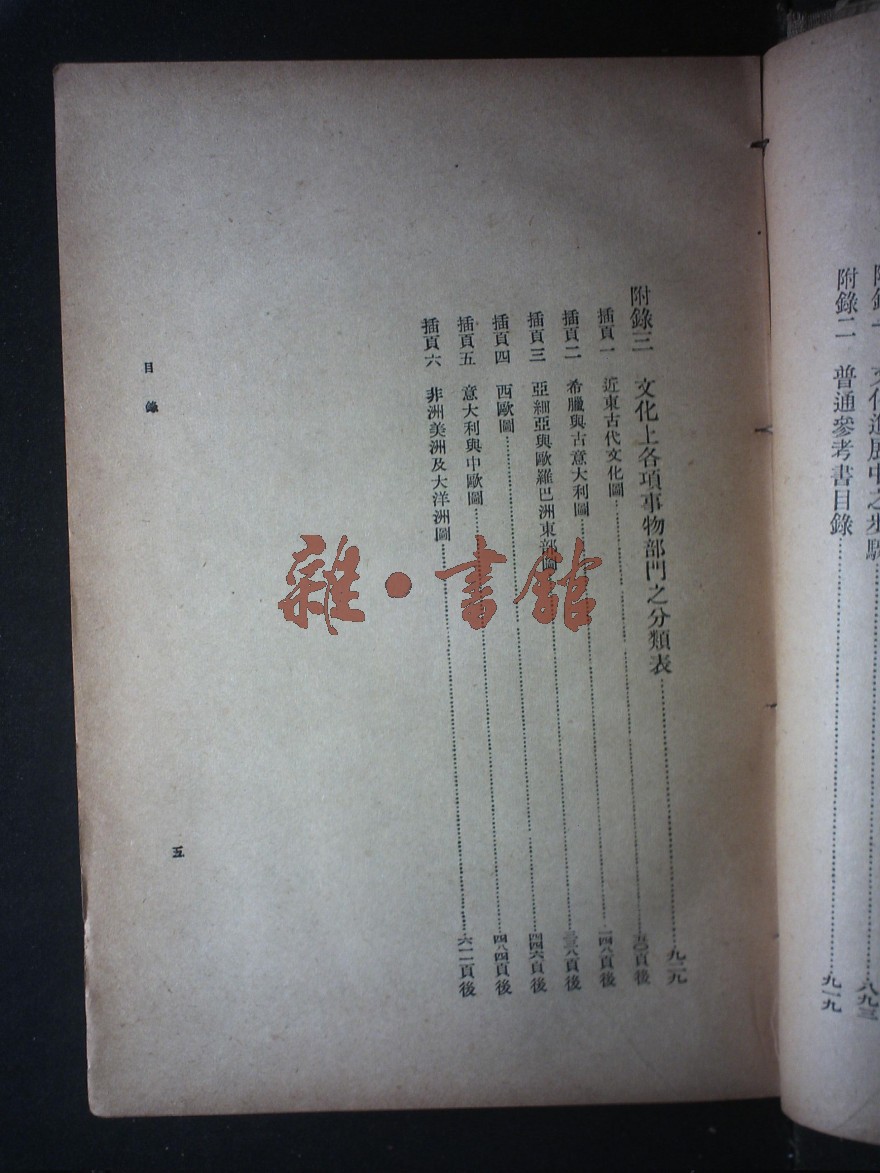 附錄一 文化進展中之步驟……八九三
附錄二 普通參考書目錄……九一九
附錄三 文化上各項事物部門之分類表……九二九
插頁一 近東古代文化圖……五〇頁後
插頁二 希臘與古意大利圖……一四八頁後
插頁三 亞細亞與歐羅巴洲東部圖……頁後
插頁四 西歐圖……四四六頁後
插頁五 意大利與中歐圖……四八四頁後
插頁六 非洲美洲及大洋洲圖……六一一頁後
目錄
五
雜·書館